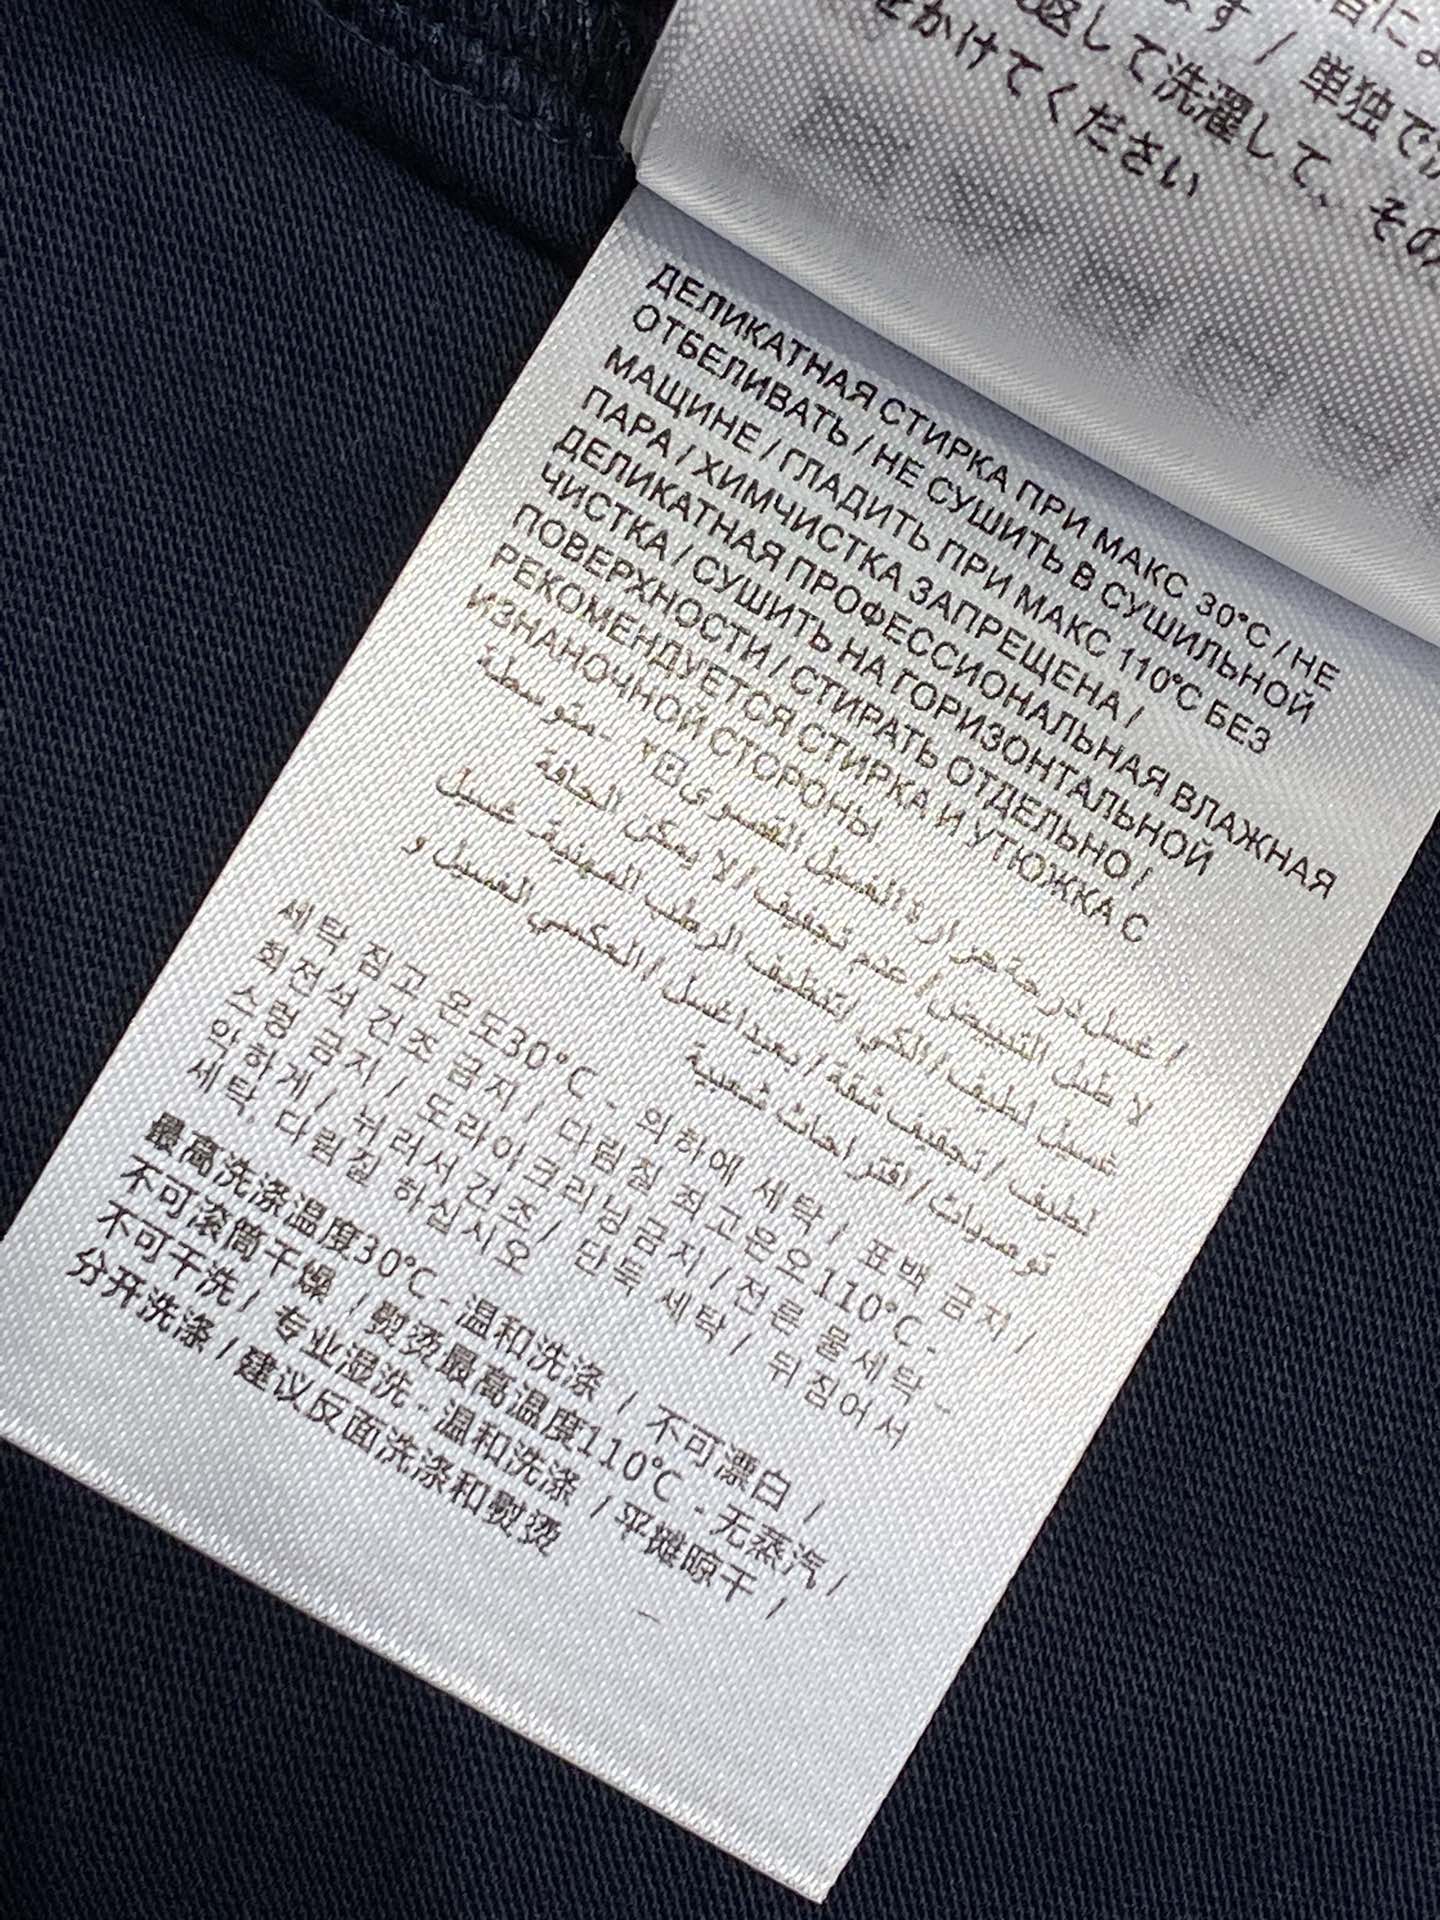 単独で
返して洗濯して、その
をかけてください
ДЕЛИКАТНАЯ СТИРКА ПРИ МАКС 30°C / НЕ
ОТБЕЛИВАТЬ / НЕ СУШИТЬ В СУШИЛЬНОЙ
МАШИНЕ / ГЛАДИТЬ ПРИ МАКС 110°C БЕЗ
ПАРА / ХИМЧИСТКА ЗАПРЕЩЕНА /
ДЕЛИКАТНАЯ ПРОФЕССИОНАЛЬНАЯ ВЛАЖНАЯ
ЧИСТКА / СУШИТЬ НА ГОРИЗОНТАЛЬНОЙ
ПОВЕРХНОСТИ / СТИРАТЬ ОТДЕЛЬНО /
РЕКОМЕНДУЕТСЯ СТИРКА И УТЮЖКА С
ИЗНАНОЧНОЙ СТОРОНЫ
/ اغسل درجة حرارة الغسيل القصوى متوسطة
لا طبل التبييض / عدم تجفيف / لا يمكن الجافة
غسيل لطيف / الكي / تنظيف الرطب المهنية غسيل
لطيف / تجفيف شقة / بعيدا غسل / العكسي الغسيل و
توصيات / اقتراحات شعبية
세탁 짐고 온도30°C - 의하에 세탁 / 표백 금지 /
회전석 건조 금지 / 다림질 최고온오110°C -
스렁 금지 / 도라이크리닝금지 / 전른 물세탁 -
악하게 / 뉘러서건조 / 단독 세탁 / 뒤짐어서
세탁, 다림질 하십시오
最高洗涤温度30°C - 温和洗涤 / 不可漂白 /
不可滚筒干燥 / 熨烫最高温度110°C - 无蒸汽 /
不可干洗 / 专业湿洗 - 温和洗涤 / 平摊晾干 /
分开洗涤 / 建议反面洗涤和熨烫